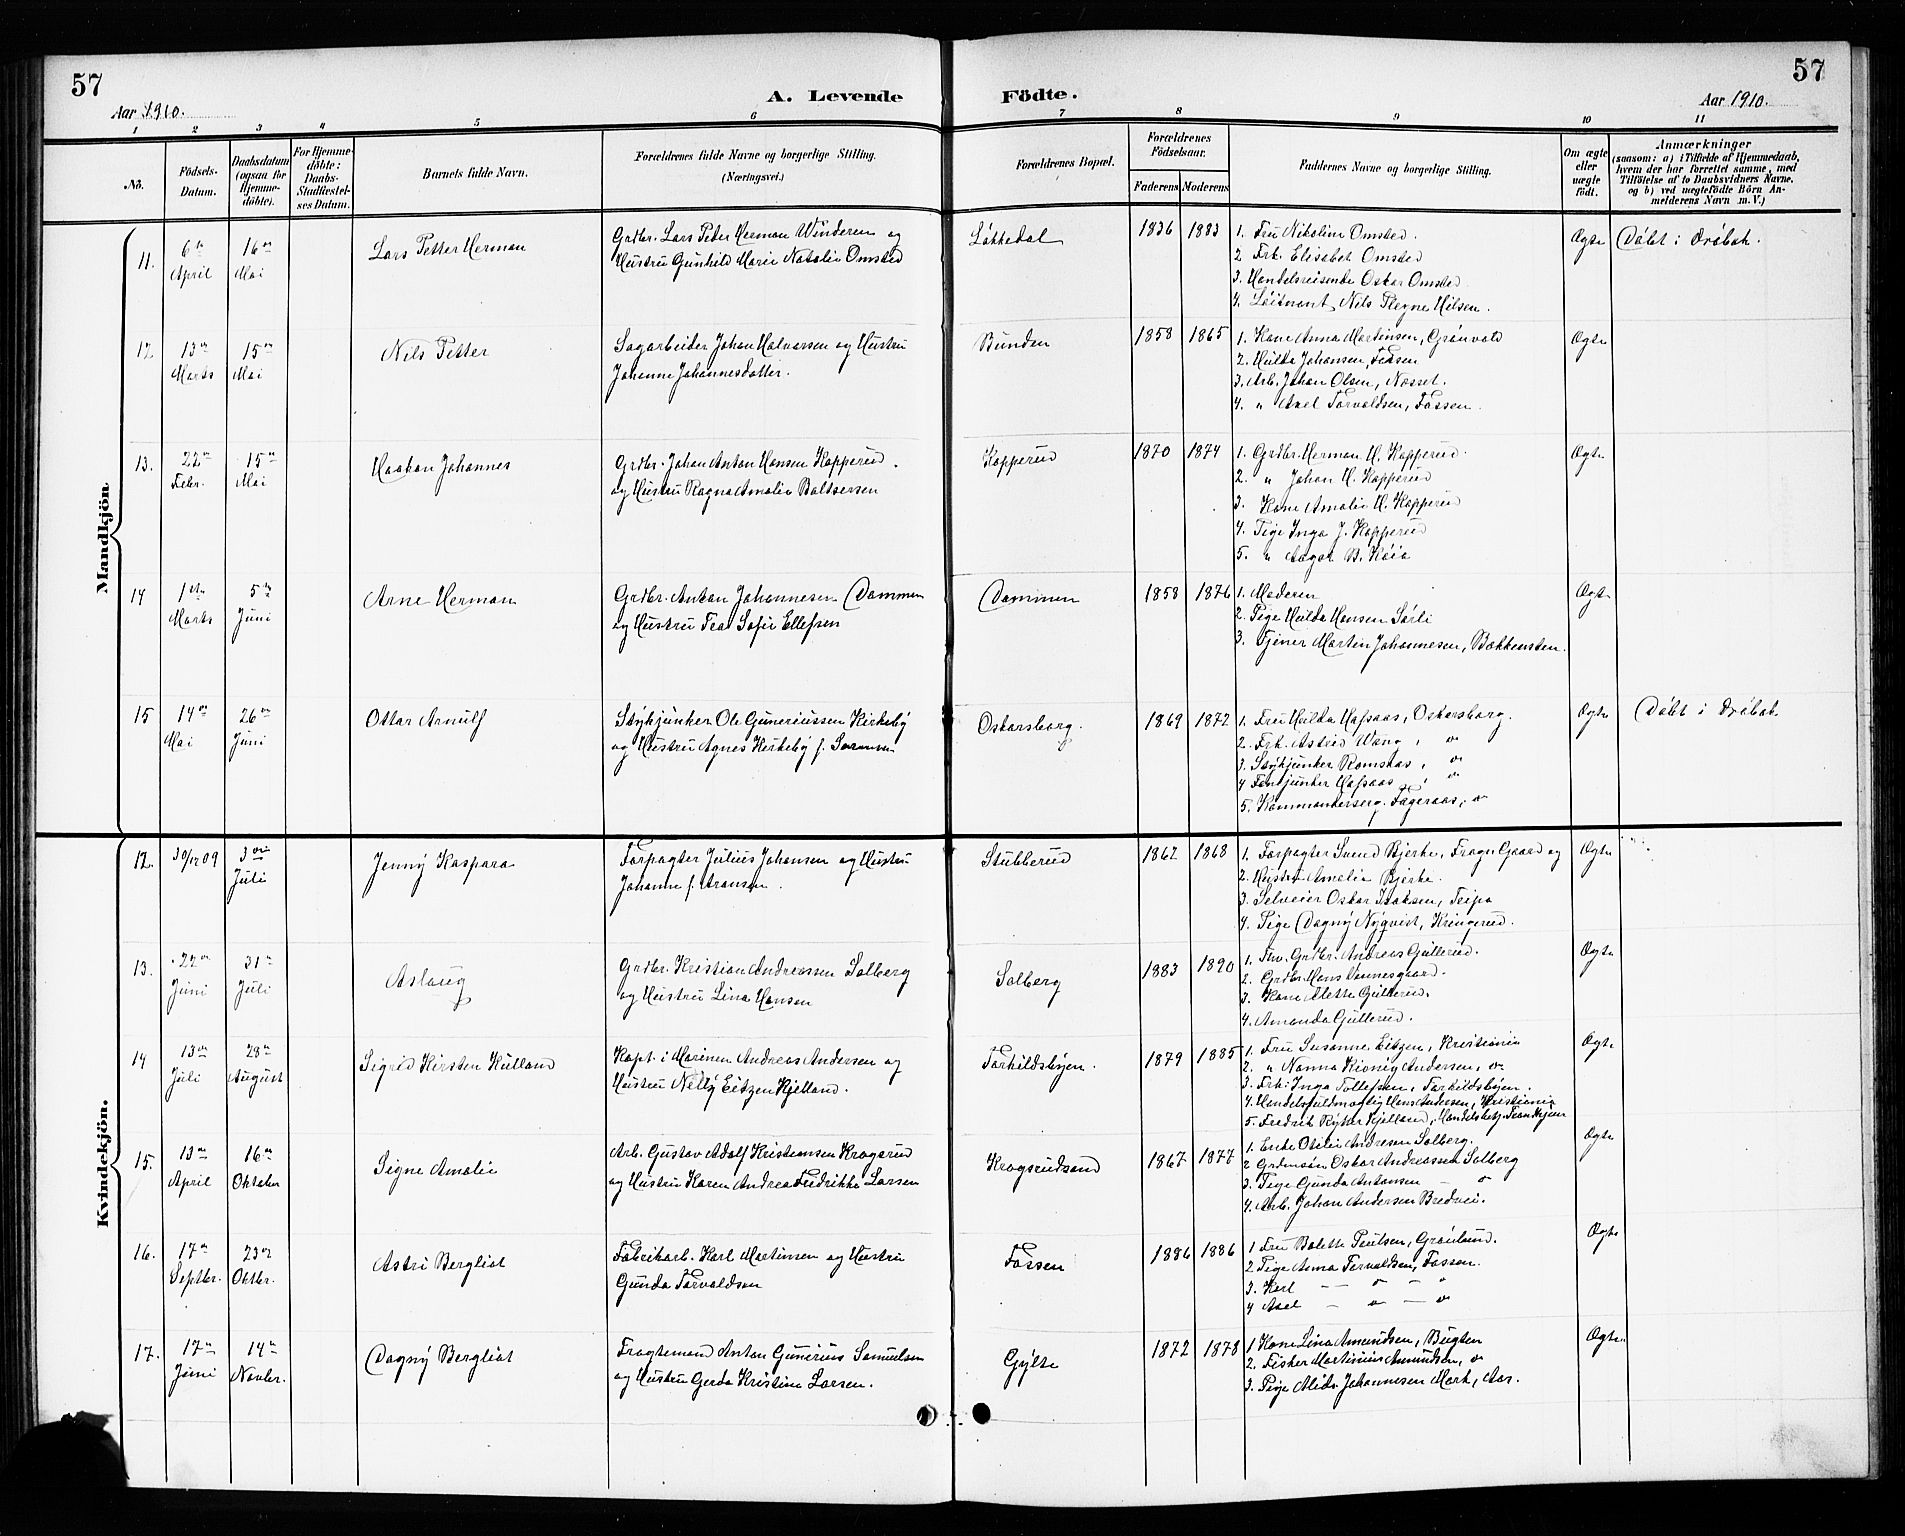 57
57
Aar 1910.
A. Levende Födte.
Aar 1910.
1 2 3 4 5 6 7 8 9 10 11
No.
Födsels-Datum.
Daabsdatum (ogsaa for Hjemme-döbte).
For Hjemme-döbte: Daabs-Stadfæstel-ses Datum.
Barnets fulde Navn.
Forældrenes fulde Navne og borgerlige Stilling. (Næringsvei.)
Forældrenes Bopæl.
Forældrenes Födselsaar.
Faderens Moderens
Faddernes Navne og borgerlige Stilling.
Om ægte eller uægte födt.
Anmærkninger
(saasom: a) i Tilfælde af Hjemmedaab,
hvem der har forrettet samme, med
Tilföielse af to Daabsvidners Navne,
og b) ved uægtefödte Börn An-
melderens Navn m. V.)
Mandkjön
11. 6te April 16de Mai Lars Petter Herman
Grdbr. Lars Peter Herman Winderen og
Hustru Gunhild Marie Natalie Omsted
Løkkedal 1836 1883
1. Fru Nikoline Omsted.
2. Frk. Elisabet Omsted
3. Handelsreisende Oskar Omsted.
4. Løitnant Nils Nilsen.
Ægte Døbt i Drøbak.
12 13de Marts 15de Mai Nils Petter
Sagarbeider Johan Halvorsen og Hustru
Johanne Johannesdatter.
Bunden 1858 1865
1. Kone Anna Martinsen, Grønvold
2. Hulda Johansen, Fossen
3. Arb. Johan Olsen, Næsset.
4. " Axel Torvaldsen, Fossen.
Ægte
13. 22de Febr. 15de Mai Haakon Johannes
Grdbr. Johan Anton Hansen Kopperud.
og Hustru Ragna Amalie Baltsersen
Kopperud 1870 1874
1. Grdbr. Herman H. Kopperud.
2. " Johan H. Kopperud
3. Kone Amalie H. Kopperud
4. Pige Inga J. Kopperud
5. " Aagot B. Køia
Ægte
14 1ste Marts 5te Juni Arne Herman
Grdbr. Anton Johannesen Dammen
og Hustru Tea Sofie Ellefsen
Dammen 1858 1876
1. Moderen
2. Pige Hulda Hansen Sørli
3. Tjener Martin Johannesen, Bakkensten.
Ægte
15 14de Mai 26de Juni Ottar Arnulf
Stykjunker Ole Guneriussen Kirkeby
og Hustru Agnes Kirkeby f. Sørensen
Oskarsborg. 1869 1872
1. Fru Hulda Hafsaas, Oskarsborg.
2. Frk. Astrid Wang, "
3. Stykjunker Romstas, "
4 Fanejunker Hafsaas, "
5. Kommanderserg. Fageraas, "
Ægte Døbt i Drøbak
Kvindekjön.
12. 30/12 09 3die Juli Jenny Kaspara
Forpagter Julius Johansen og Hustru
Johanne f. Aronsen.
Stubberud 1862 1868
1. Forpagter Svend Bjerke, Frogn Gaard og
2. Hustru Amalie Bjerke.
3. Selveier Oskar Isaksen, Teipa
4. Pige Dagny Nyqvist, Kringerud.
Ægte
13. 22de Juni 31te Juli Aslaug
Grdbr. Kristian Andreassen Solberg
og Hustru Lina Hansen
Solberg 1883 1890
1. Fhv. Grdbr. Andreas Gullerud.
2. Grdbr. Hans Vennesgaard.
3. Kone Alette Gullerud.
4. Amanda Gullerud.
Ægte
14 13de Juli 28de August Sigrid Kirsten Hulland
Kapt. i Marinen Andreas Andersen og
Hustru Nelly Eitzen Kjelland.
Torkildsbyen. 1879 1885
1. Fru Susanne Eitzen, Kristiania
2. " Nanna Kionig Andersen, "
3. Frk. Inga Tollefsen, Torkildsbyen.
4. Handelsfuldmægtig Hans Andersen, Kristiania
5. Fredrik Kjelland,
Ægte
15. 13de April 16de Oktober Signe Amalie
Arb. Gustav Adolf Kristiansen Kragerud
og Hustru Karen Andrea Fredrikke Larsen
Kragsrudsand 1867 1877
1. Enke Otilie Andresen Solberg.
2 Grdmsøn Oskar Andreassen Solberg
3. Pige Gunda Antonsen — "
4. Arb. Johan Andersen Bredvei.
Ægte
16. 17de Septbr. 23de Oktbr. Astri Bergliot
Fabrikarb. Karl Martinsen og Hustru
Gunda Torvaldsen
Fossen 1886 1886
1 Fru Bolette Paulsen, Grønlund.
2 Pige Anna Torvaldsen, Fossen.
3. Karl — " — "
4 Axel — " — "
Ægte
17. 17de Juni 14de Novbr. Dagny Bergliot
Fragtemand Anton Gunerius Samuelsen
og Hustru Gerda Kristine Larsen.
Gylte 1872 1878
1 Kone Lina Amundsen, Bugten
2. Fisker Martinius Amundsen, "
3. Pige Alide Johannesen Mork, Aas.
Ægte